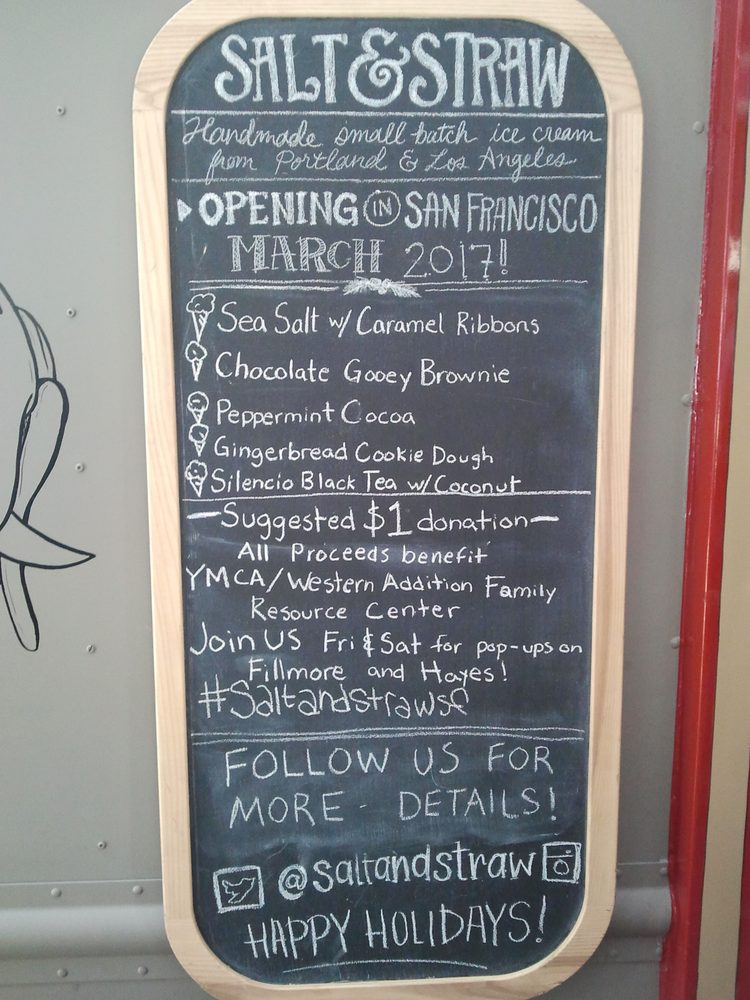 SALT & STRAW
Handmade small batch ice cream
from Portland & Los Angeles
OPENING IN SAN FRANCISCO
MARCH 2017!
Sea Salt w/ Caramel Ribbons
Chocolate Gooey Brownie
Peppermint Cocoa
Gingerbread Cookie Dough
Silencio Black Tea w/ Coconut
—Suggested $1 donation—
All Proceeds benefit
YMCA/Western Addition Family
Resource Center
Join US Fri & Sat for pop-ups on
Fillmore and Hayes!
#Saltandstrawsf
FOLLOW US FOR
MORE - DETAILS!
@saltandstraw
HAPPY HOLIDAYS!